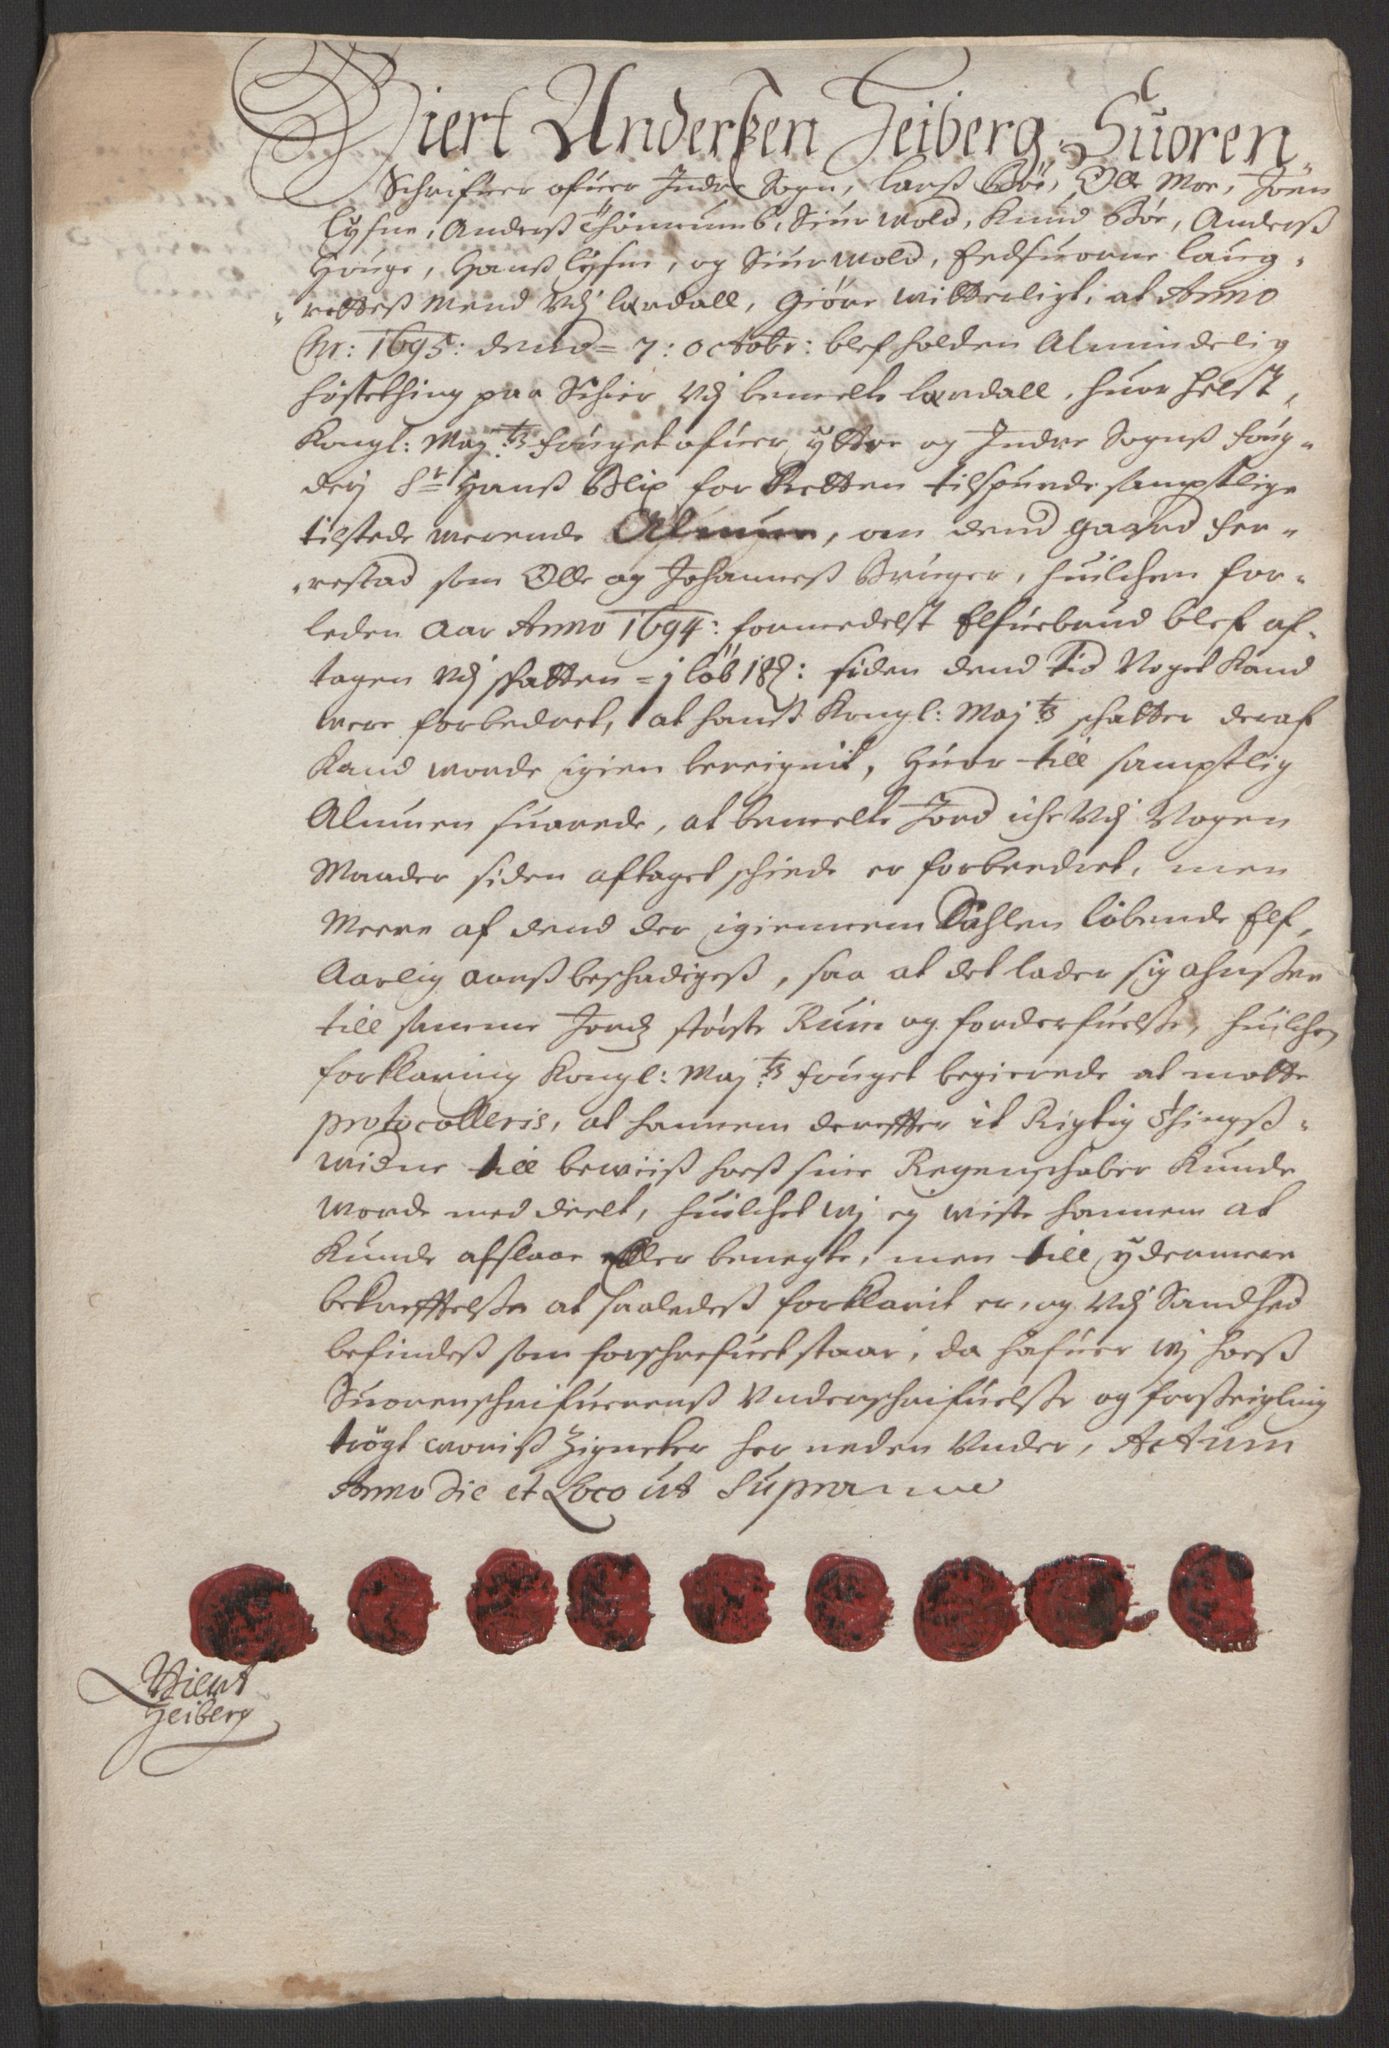 Niert Anderßen Heiberg, Suoren-
Schrifuer ofuer Indre Sogn, Larß Böe, Olle Moe, Joen
Lysne, Anderß Tönnumb, Siur Wold, Knud Böe, Anderß
Houge, Hanß Lysne, og Siur Wold, Eedsuorne laug-
-retteß Mend Udj Lærdall, Giöre witterligt, at Anno
Chr: 1695: dend = 7: octobr: blef holden Almindelig
Höstething paa Schier Udj bemelte Lærdall, huor helst
Kongl: May:ts fouget ofuer yttre og Indre Sogns foug-
derj Sr Hanß Blix for Retten tilspurde samptlige
tilstede werende Almuen, om dend gaard Fer-
-restad som Olle og Johanneß Bruger, huilchen for-
leden Aar Anno 1694: formedelst Elfuebrud blef af-
tagen Udj skatten = j löb 18: siden dend tid Noget Kand
were forbedret, at hanß Kongl: Maj:ts schatter deraf
Kand worde igien bereignit, Huor till samptlig
Almuen suarede, at bemelte Jord iche Udj Nogen
Maader siden aftaget schiede er forbeedret, men
Meere af dend der igiennem Dahlen löbende Elf,
Aarlig aarß beschadigeß, saa at det lader sig ahnsee
till samme Jordß störste Ruin og forderfuelße, huilchen
forklaring Kongl: Maj:ts fouget begierede at motte
protocolleris, at hannem derefter it Rigtig Thingß-
widne till bewiiß hoeß sine Regenschaber Kunde
worde meddeelt, huilchet wj ej wiste hannem at
Kunde afslaae eller benegte, men till ydermeere
bekrefftelße at saaledeß forklarit er, og Udj Sandhed
befindeß som forschrefuet staar, da hafuer wj hoeß
Suorenschrifuerenß Underschrifuelße og forseigling
trögt woriß Zigneter her neden Under, Actum
Anno die et Loco ut Supra
Niert
Heiberg